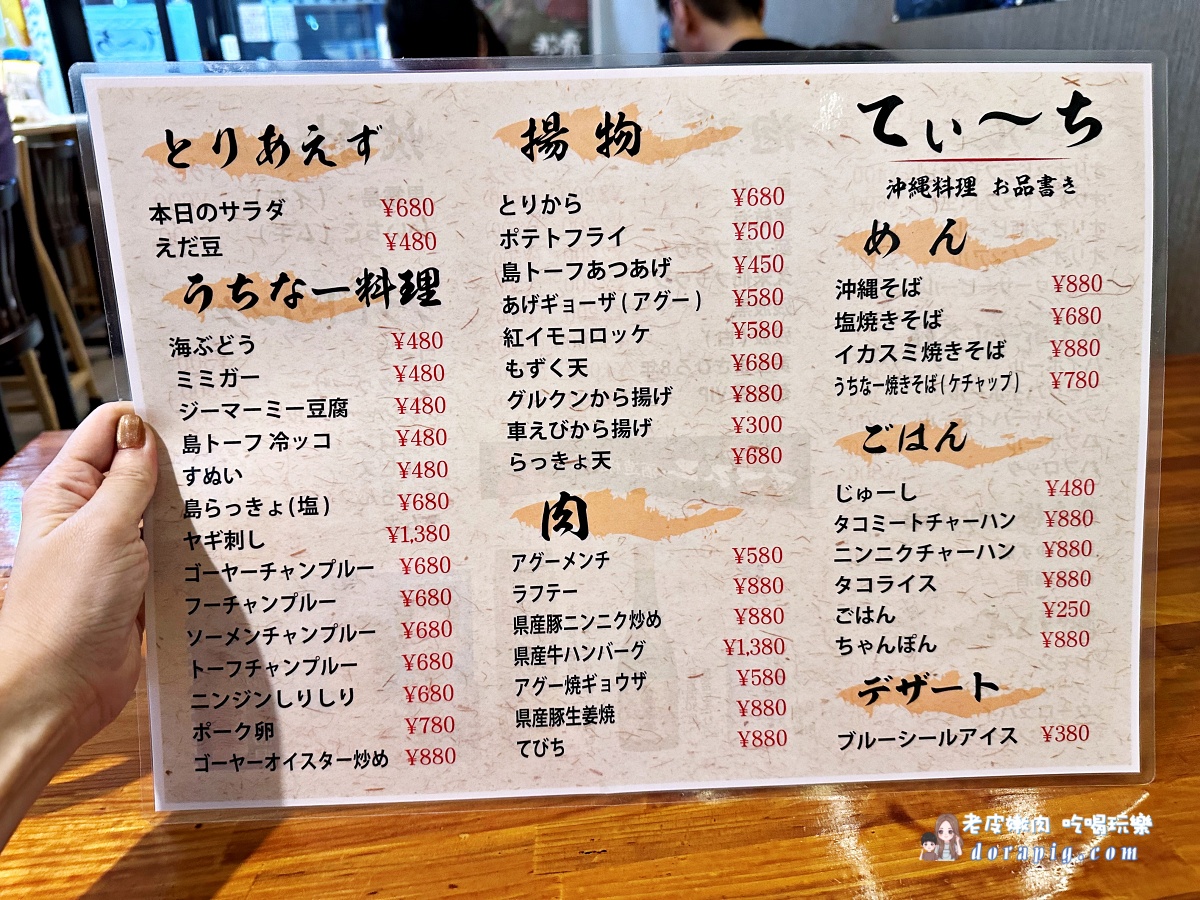 とりあえず
本日のサラダ ¥680
えだ豆 ¥480
うちなー料理
海ぶどう ¥480
ミミガー ¥480
ジーマーミー豆腐 ¥480
島トーフ 冷ッコ ¥480
すぬい ¥480
島らっきょ(塩) ¥680
ヤギ刺し ¥1,380
ゴーヤーチャンプルー ¥680
フーチャンプルー ¥680
ソーメンチャンプルー ¥680
トーフチャンプルー ¥680
ニンジンしりしり ¥680
ポーク卵 ¥780
ゴーヤーオイスター炒め ¥880
揚物
とりから ¥680
ポテトフライ ¥500
島トーフあつあげ ¥450
あげギョーザ(アグー) ¥580
紅イモコロッケ ¥580
もずく天 ¥680
グルクンから揚げ ¥880
車えびから揚げ ¥300
らっきょ天 ¥680
肉
アグーメンチ ¥580
ラフテー ¥880
県産豚ニンニク炒め ¥880
県産牛ハンバーグ ¥1,380
アグー焼ギョウザ ¥580
県産豚生姜焼 ¥880
てびち ¥880
てぃ〜ち
沖縄料理 お品書き
めん
沖縄そば ¥880
塩焼きそば ¥680
イカスミ焼きそば ¥880
うちなー焼きそば(ケチャップ) ¥780
ごはん
じゅーし ¥480
タコミートチャーハン ¥880
ニンニクチャーハン ¥880
タコライス ¥880
ごはん ¥250
ちゃんぽん ¥880
デザート
ブルーシールアイス ¥380
老皮嫩肉 吃喝玩樂
dorapig.com